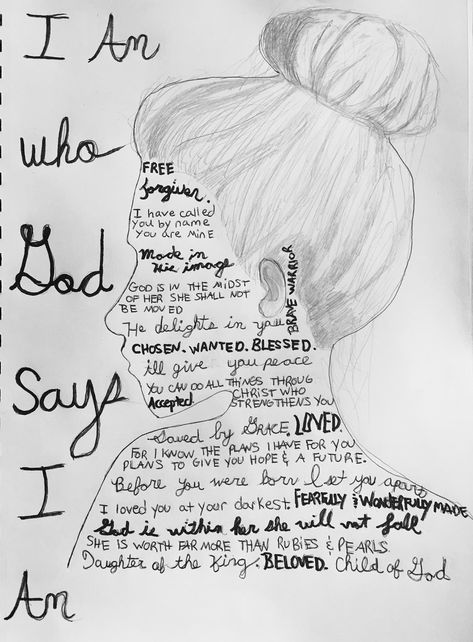 I Am
who
God
Says
I
Am
FREE
forgiven.
I have called
you by name
You are MinE
Made in
His image
GOD IS IN THE MIDST
OF HER SHE SHALL NOT
BE MOVED
He delights in you
BRAVE WARRIOR
CHOSEN. WANTED. BLESSED.
i'll give you peace
You CAN DO ALL THINGS THROUG
CHRIST WHO
Accepted STRENGTHENS YOU
Saved by GRACE. LOVED.
FOR I KNOW THE PLANS I HAVE FOR YOU
PLANS TO GIVE YOU HOPE & A FUTURE.
Before you were born I set you apart
I loved you at your darkest. FEARFULLY & WONDERFULLY MADE.
God is within her she will not fall
SHE IS WORTH FAR MORE THAN RUBIES & PEARLS.
Daughter of the King. BELOVED. Child of God